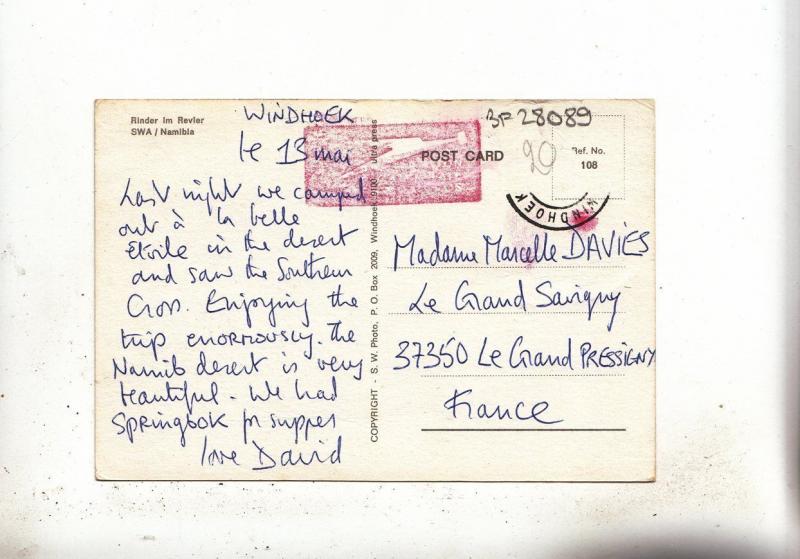 Rinder im Revier
SWA / Namibia
WINDHOEK
le 13 mai
Last night we camped
out à la belle
Etoile in the desert
and saw the Southern
Cross. Enjoying the
trip enormously. The
Namib desert is very
beautiful. We had
Springbok for supper
love David
COPYRIGHT - S. W. Photo, P. O. Box 2009, Windhoek 9100 - ultra press
POST CARD
BF 28089
20
Ref. No.
108
WINDHOEK
Madame Marcelle DAVIES
Le Grand Savigny
37350 Le Grand PRESSIGNY
France